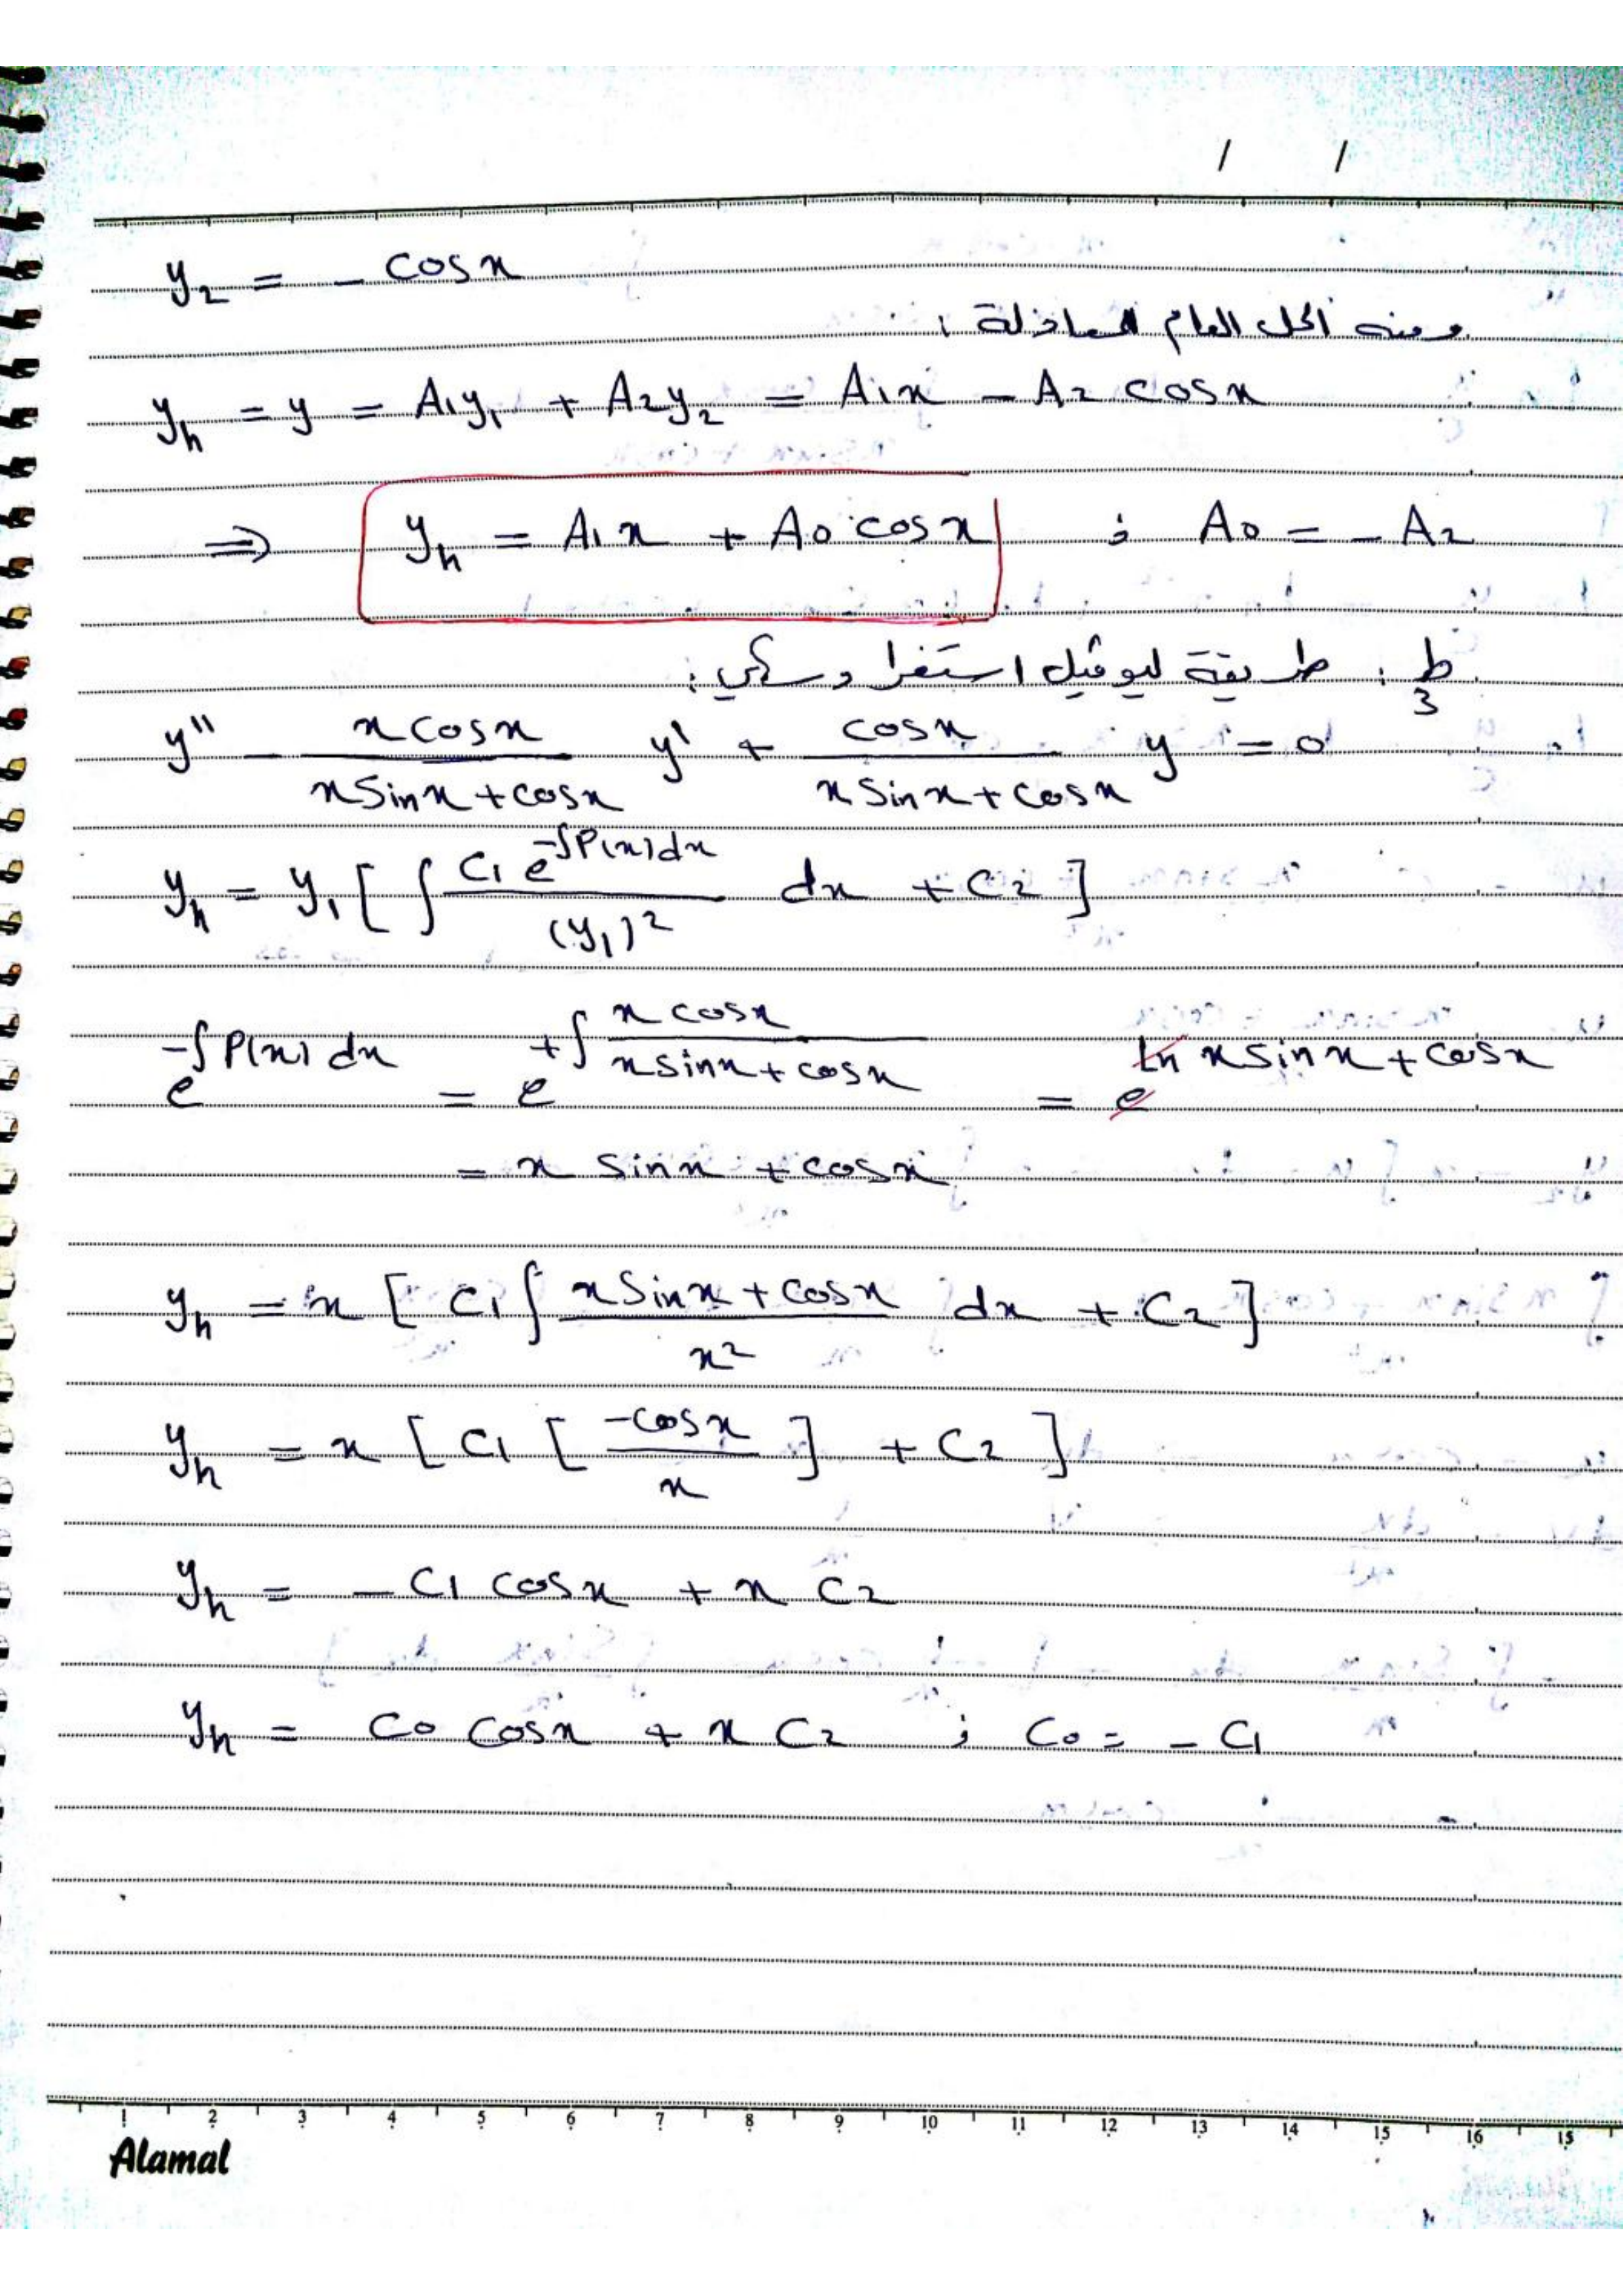 / /
y₂ = - cosx
ومنه الحل العام للمعادلة :
yₕ = y = A₁y₁ + A₂y₂ = A₁x - A₂ cosx
⇒ yₕ = A₁x + A₀ cosx ; A₀ = - A₂
ط₃ : طريقة ليوفيل استغرادسكي :
y'' - (x cosx)/(x sinx + cosx) y' + (cosx)/(x sinx + cosx) y = 0
yₕ = y₁ [ ∫ (C₁ e^(-∫P(x)dx))/(y₁)² dx + C₂ ]
e^(-∫P(x)dx) = e^(+∫ (x cosx)/(x sinx + cosx)) = e^(ln x sinx + cosx)
= x sinx + cosx
yₕ = x [ C₁ ∫ (x sinx + cosx)/x² dx + C₂ ]
yₕ = x [ C₁ [ (-cosx)/x ] + C₂ ]
yₕ = - C₁ cosx + x C₂
yₕ = C₀ cosx + x C₂ ; C₀ = - C₁
1 2 3 4 5 6 7 8 9 10 11 12 13 14 15 16 15
Alamal